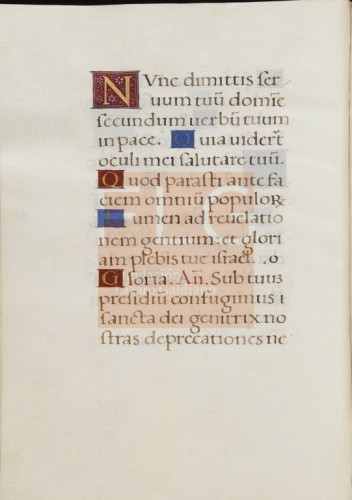 NVnc dimittis ser
uum tuū domine
secundum uerbū tuum
in pace. Quia uiderūt
oculi mei salutare tuū.
Quod parasti ante fa
ciem omniū populoꝝ
Lumen ad reuelatio
nem gentium: et glori
am plebis tue israel. o
Gloria. Añ. Sub tuum
presidiū confugimus
sancta dei genitrix. no
stras deprecationes ne